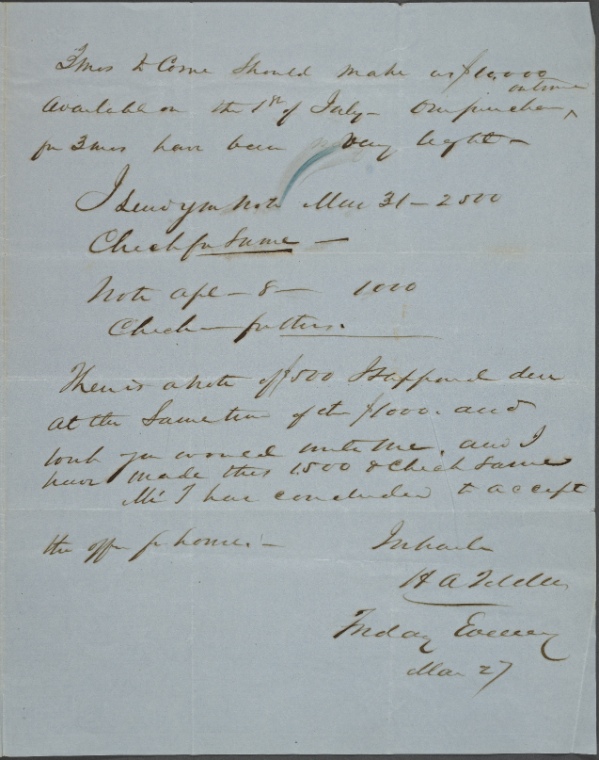 3 mos to Come Should make us $10,000
on time
available on the 1st of July - Our purchases
for 3 mos have been very light -
I Send you Note Mar 31 - 2500
Check for Same -
Note apl - 8 - 1000
Check for this.
There is a Note of $500 due
at the Same time of the $1000. and
you would write me, and I
have made this 1500 & Check Same
Mr T has concluded to accept
the offer for house. -
In haste
H A
Friday Evening
Mar 27